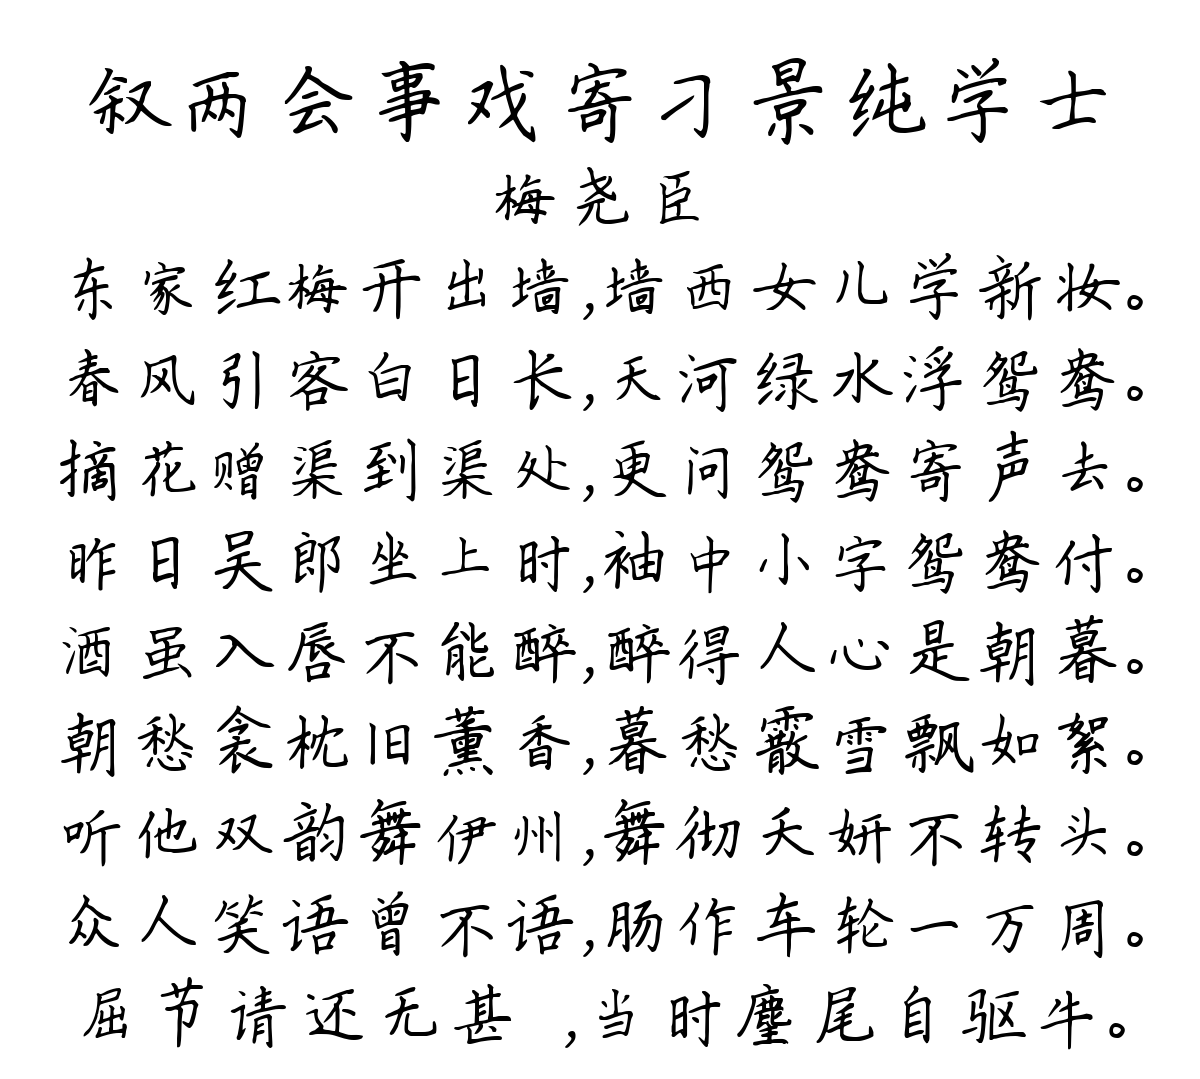 叙两会事戏寄刁景纯学士
梅尧臣
东家红梅开出墙,墙西女儿学新妆。
春风引客白日长,天河绿水浮鸳鸯。
摘花赠渠到渠处,更问鸳鸯寄声去。
昨日吴郎坐上时,袖中小字鸳鸯付。
酒虽入唇不能醉,醉得人心是朝暮。
朝愁衾枕旧薰香,暮愁霰雪飘如絮。
听他双韵舞伊州,舞彻夭妍不转头。
众人笑语曾不语,肠作车轮一万周。
屈节请还无甚 ,当时麈尾自驱牛。